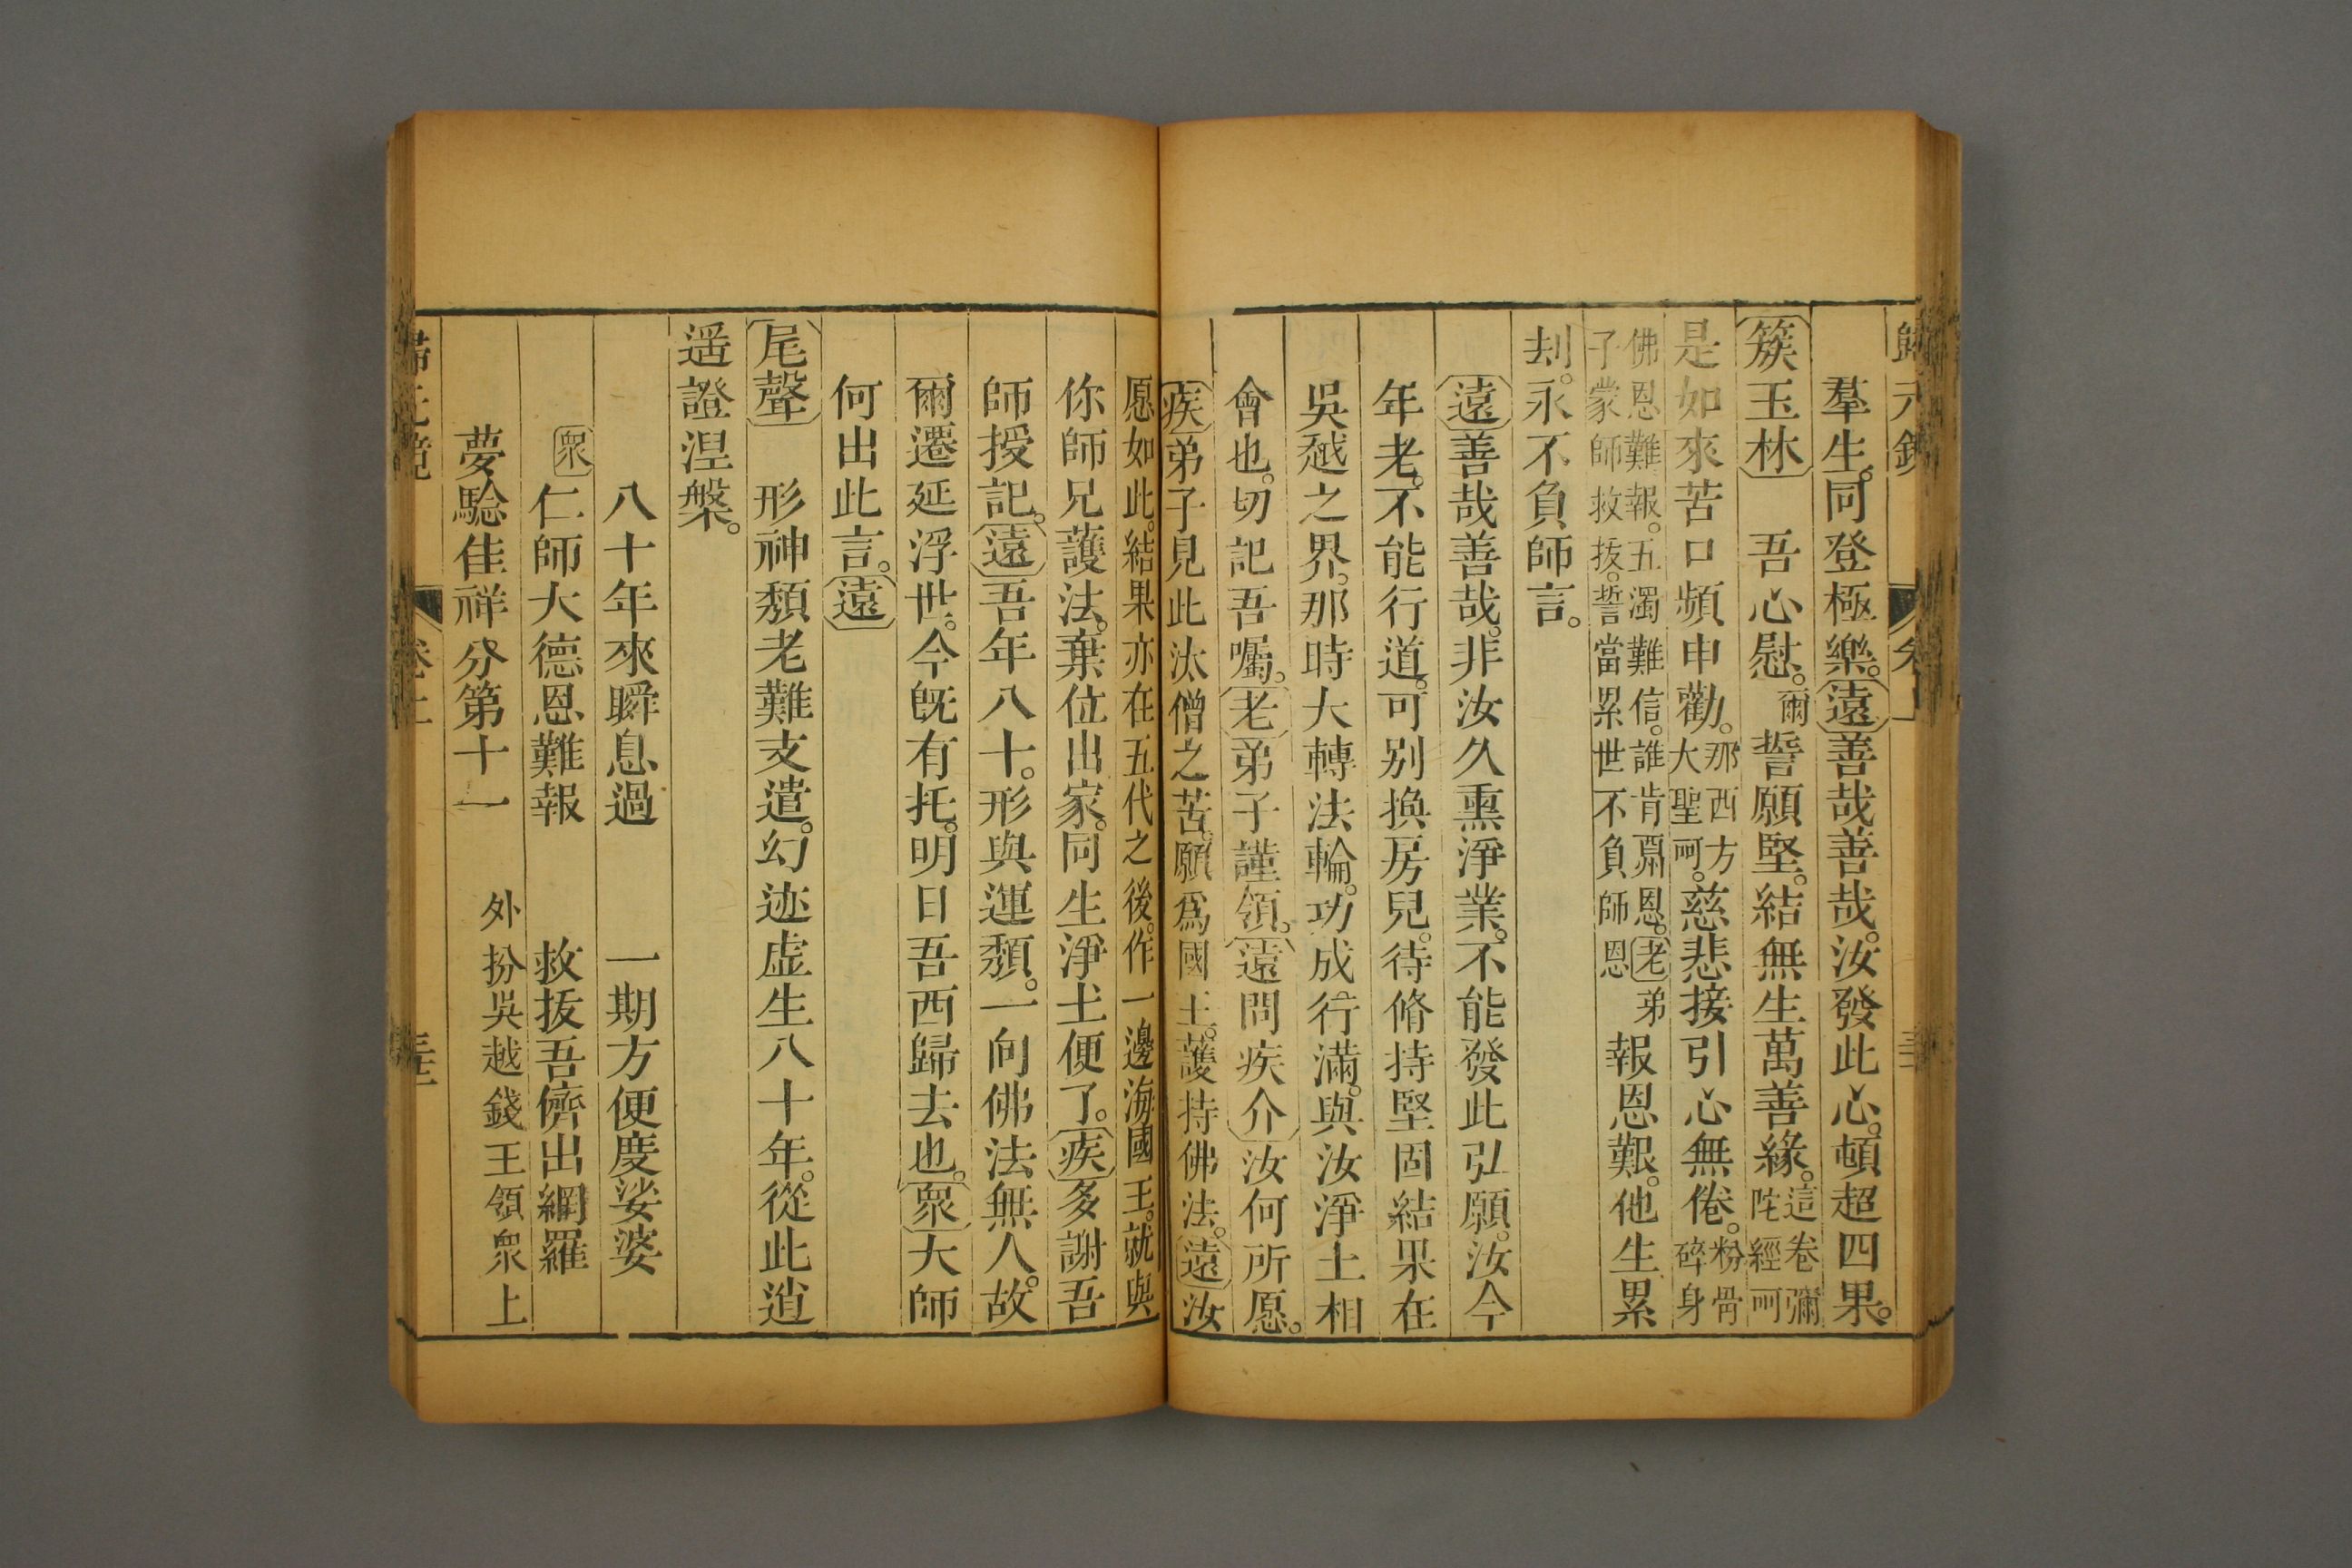 歸元鏡 卷上
羣生。同登極樂。遠善哉善哉。汝發此心。頓超四果。
簇玉林 吾心慰。爾誓願堅。結無生萬善緣。這卷彌陀經呵
是如來苦口頻申勸。那西方大聖呵。慈悲接引心無倦。粉骨碎身
佛恩難報。五濁難信。誰肯酬恩。老弟子蒙師救拔。誓當累世不負師恩 報恩艱。他生累
刦。永不負師言。
遠善哉善哉。非汝久熏淨業。不能發此弘願。汝今
年老。不能行道。可别換房兒。待脩持堅固結果在
吳越之界。那時大轉法輪。功成行滿。與汝淨土相
會也。切記吾囑。老弟子謹領。遠問疾介汝何所愿。
疾弟子見此汰僧之苦。願爲國王。護持佛法。遠汝
愿如此。結果亦在五代之後。作一邊海國王。就與
你師兄護法。棄位出家。同生淨土便了。疾多謝吾
師授記。遠吾年八十。形與運頽。一向佛法無人。故
爾遷延浮世。今旣有托。明日吾西歸去也。眾大師
何出此言。遠
尾聲 形神頽老難支遣。幻迹虛生八十年。從此逍
遥證涅槃。
八十年來瞬息過 一期方便度娑婆
眾仁師大德恩難報 救拔吾儕出網羅
夢騐佳祥分第十一 外扮吳越錢王領衆上
歸元鏡 卷上